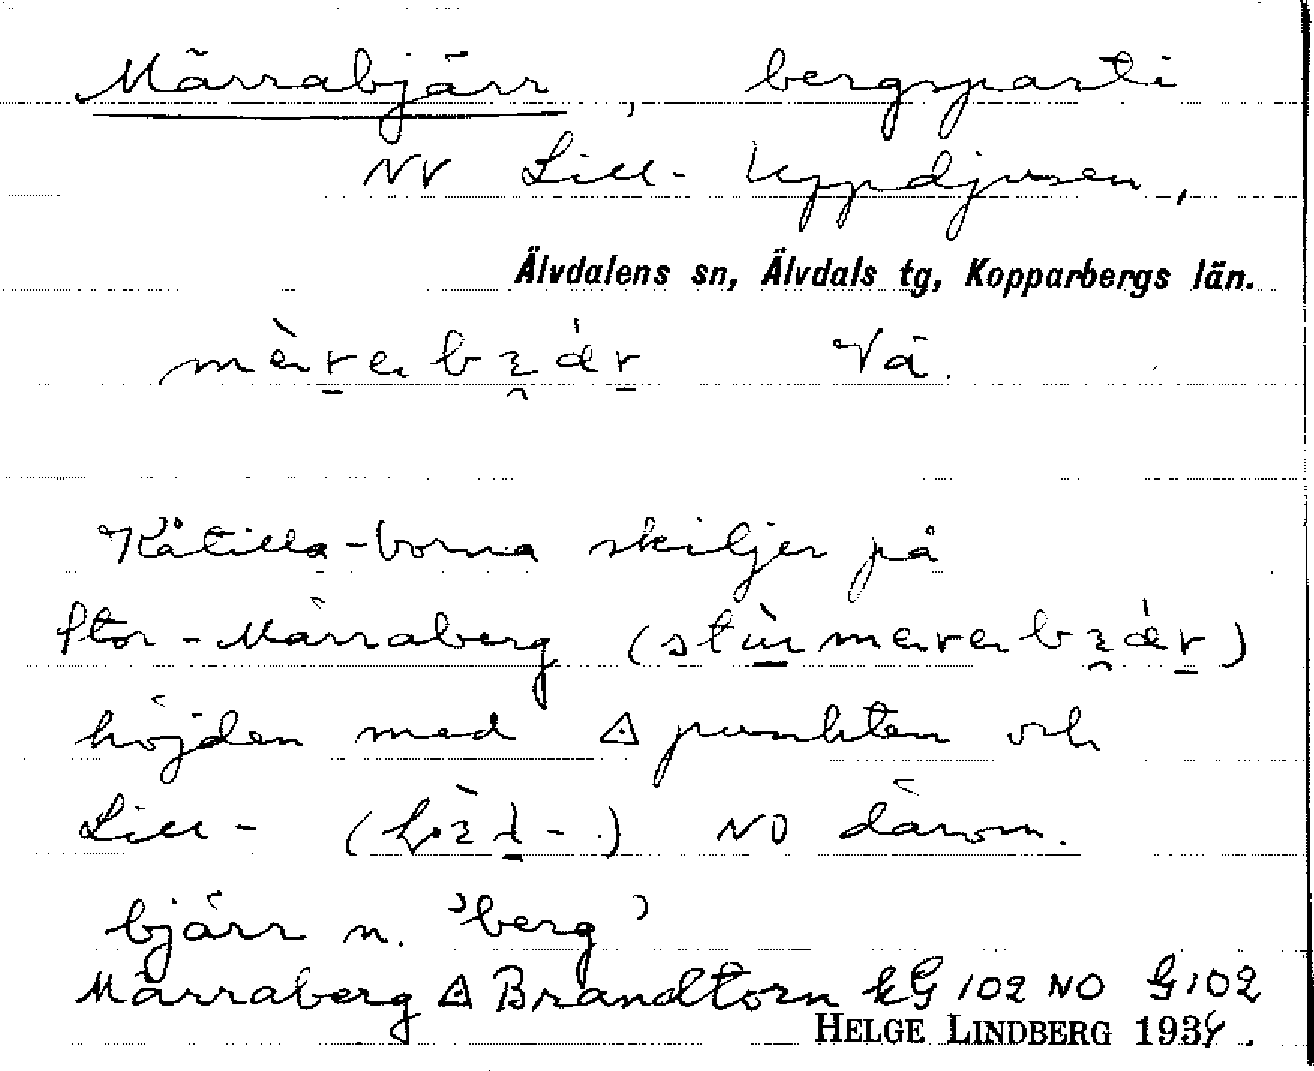 Märrabjärr, bergsparti
NV Lill-Uppdjusen,
Älvdalens sn, Älvdals tg, Kopparbergs län.
Vå.
Kåtilla-borna skiljer på
Stor-Märraberg
höjden med ◬ punkten och
Lill- NO därom.
bjärr n. 'berg'
Märraberg ◬ Brandtorn kG 102 NO G102
HELGE LINDBERG 1934.